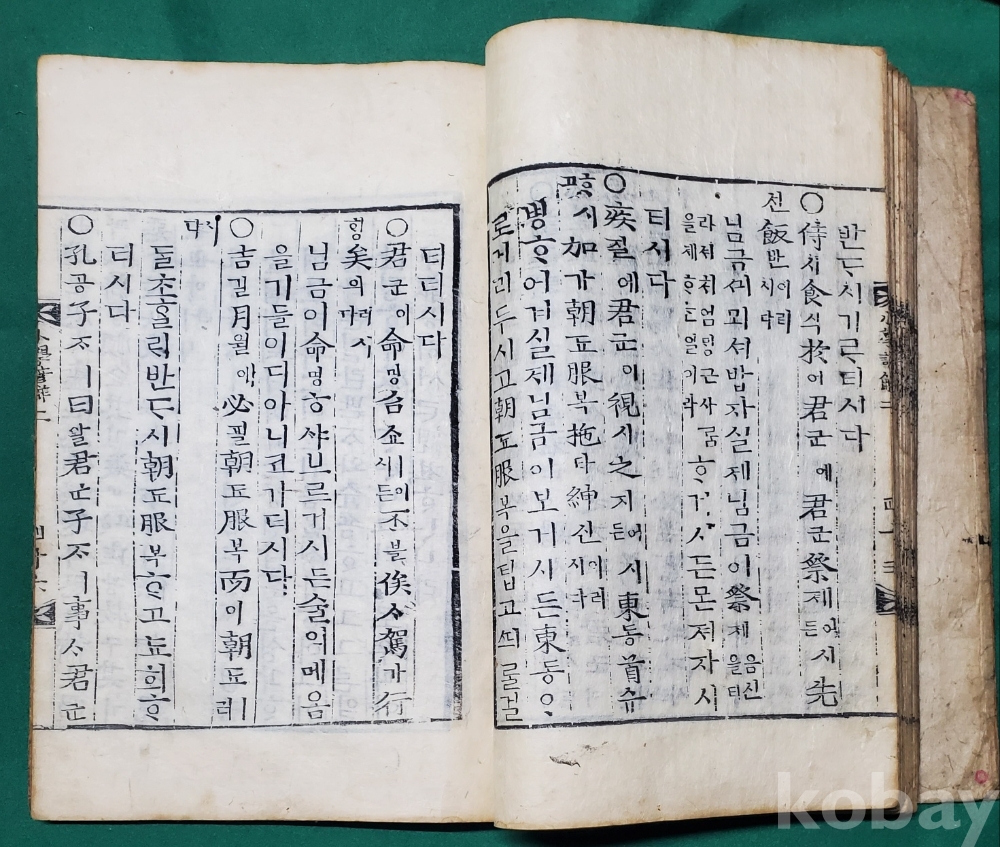 반ᄃᆞ시기ᄅᆞ터시다
○侍시食식於어君군에君군祭제어시든先
션飯반이러시다
님금ᄭᅴ뫼셔밥자실제님금이祭제
라셔처엄ᄆᆡᆼ근사ᄅᆞᆷ을제ᄒᆞᄂᆞᆫ일이라ᄒᆞ거시든몬져자시
터시다
○疾질에君군이視시之지어시든東동首슈
ᄒᆞ시고加가朝됴服복拖타紳신이러시다
병ᄒᆞ여겨실제님금이보거시든東동으
로머리두시고朝됴服복을덥고ᄯᅴᄅᆞᆯ걸
小學諺解二
터더시다
○君군이命명召쇼ㅣ어시든不블俟ᄉᆞ駕가行
ᄒᆡᆼ矣의러시다
님금이命명ᄒᆞ샤브르거시든술위메옴
을기들이디아니코가더시다
○吉길月월애必필朝됴服복而이朝됴ㅣ러시
다
ᄃᆞᆯ초ᄒᆞᄅᆡ반ᄃᆞ시朝됴服복ᄒᆞ고됴회ᄒᆞ
더시다
○孔공子ᄌᆞㅣ曰왈君군子ᄌᆞㅣ事ᄉᆞ君군
小學諺解二
kobay